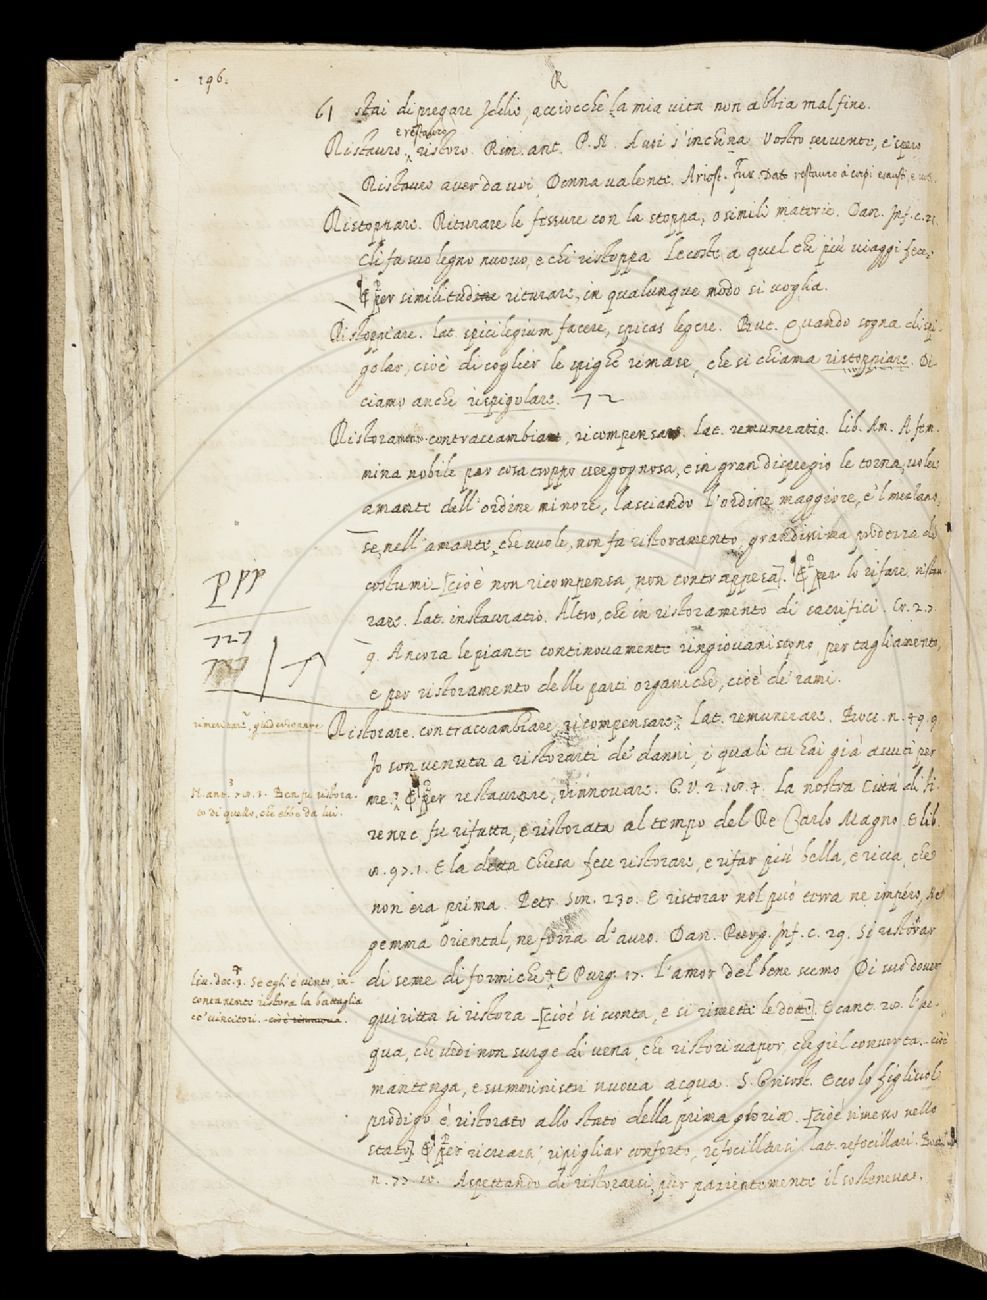 196.
R
61 stai di pregare Iddio, acciocchè la mia vita non abbia mal fine.
e restauro
Ristauro, ristoro. Rim. ant. P. N. A voi s'inchina Vostro servente, e spero
Ristauro aver da voi, Donna valente. Ariost. Fur. Dato restauro a' corpi esausti, e
Ristoppare. Riturare le fessure con la stoppa, o simili materie. Dan. Inf. c. 21.
Chi fa suo legno nuovo, e chi ristoppa Le coste a quel che più viaggi fece.
E per similitudine riturare, in qualunque modo si voglia.
Ristoppiare. lat. spicilegium facere, spicas legere. But. Quando sogna di spi-
golar, cioè di coglier le spighe rimase, che si chiama ristoppiare. Di-
ciamo anche rispigolare. 72
contraccambia, ricompensa. lat. remuneratio. lib. Am. A fem-
mina nobile par cosa troppo vergognosa, e in gran dispregio le torna, voler
amante dell'ordine minore, lasciando l'ordine maggiore, e 'l mezzano,
se nell'amante, che vuole, non fa ristoramento grandissima prodezza di
costumi [cioè non ricompensa, non contrappesa]. E per lo rifare, ristau-
rare. lat. instauratio. Altro, che in ristoramento di sacrifici. Cr. 2. 7.
9. Ancora le piante continovamente ringiovaniscono, per tagliamento,
e per ristoramento delle parti organiche, cioè de' rami.
ppp
727
rimeritare, guiderdonare
Ristorare. contraccambiare, ricompensare. Lat. remunerare. Bocc. n. 49. 9
Io son venuta a ristorarti de' danni, i quali tu hai già avuti per
me. E per restaurare, rinnovare. G. V. 2. La nostra Città di Fi-
renze fu rifatta, e ristorata al tempo del Re Carlo Magno. E lib.
E la detta Chiesa fece ristorare, e rifar più bella, e ricca, che
non era prima. Petr. Son. 230. E ristorar nol può terra ne impero, Ne
gemma Oriental, ne forza d'auro. Dan. Inf. c. 29. Si ristorar
di seme di formiche. E Purg. 17. l'amor del bene scemo Di suo dover
quiritta si ristora [cioè si sconta, e si rimette le dotte]. E cant. 28. l'ac-
qua, che vedi non surge di vena, che ristori vapor, che giel converta. cioè
mantenga, e sumministri nuova acqua. S. Grisost. Ecco lo figliuol
prodigo è ristorato allo stato della prima gloria. [cioè rimesso nello
stato] E per ricreare, ripigliar conforto, refocillarsi. lat. refocillari. Bocc.
n. 77. Aspettando di ristorarsi, pur pazientemente il sosteneva.
N. ant. Ben fu ristora-
to di quello, che ebbe da lui.
Liv. dec. 3. Se egli è vinto, in-
contanente ristora la battaglia
co' vincitori. cioè rinnuova.